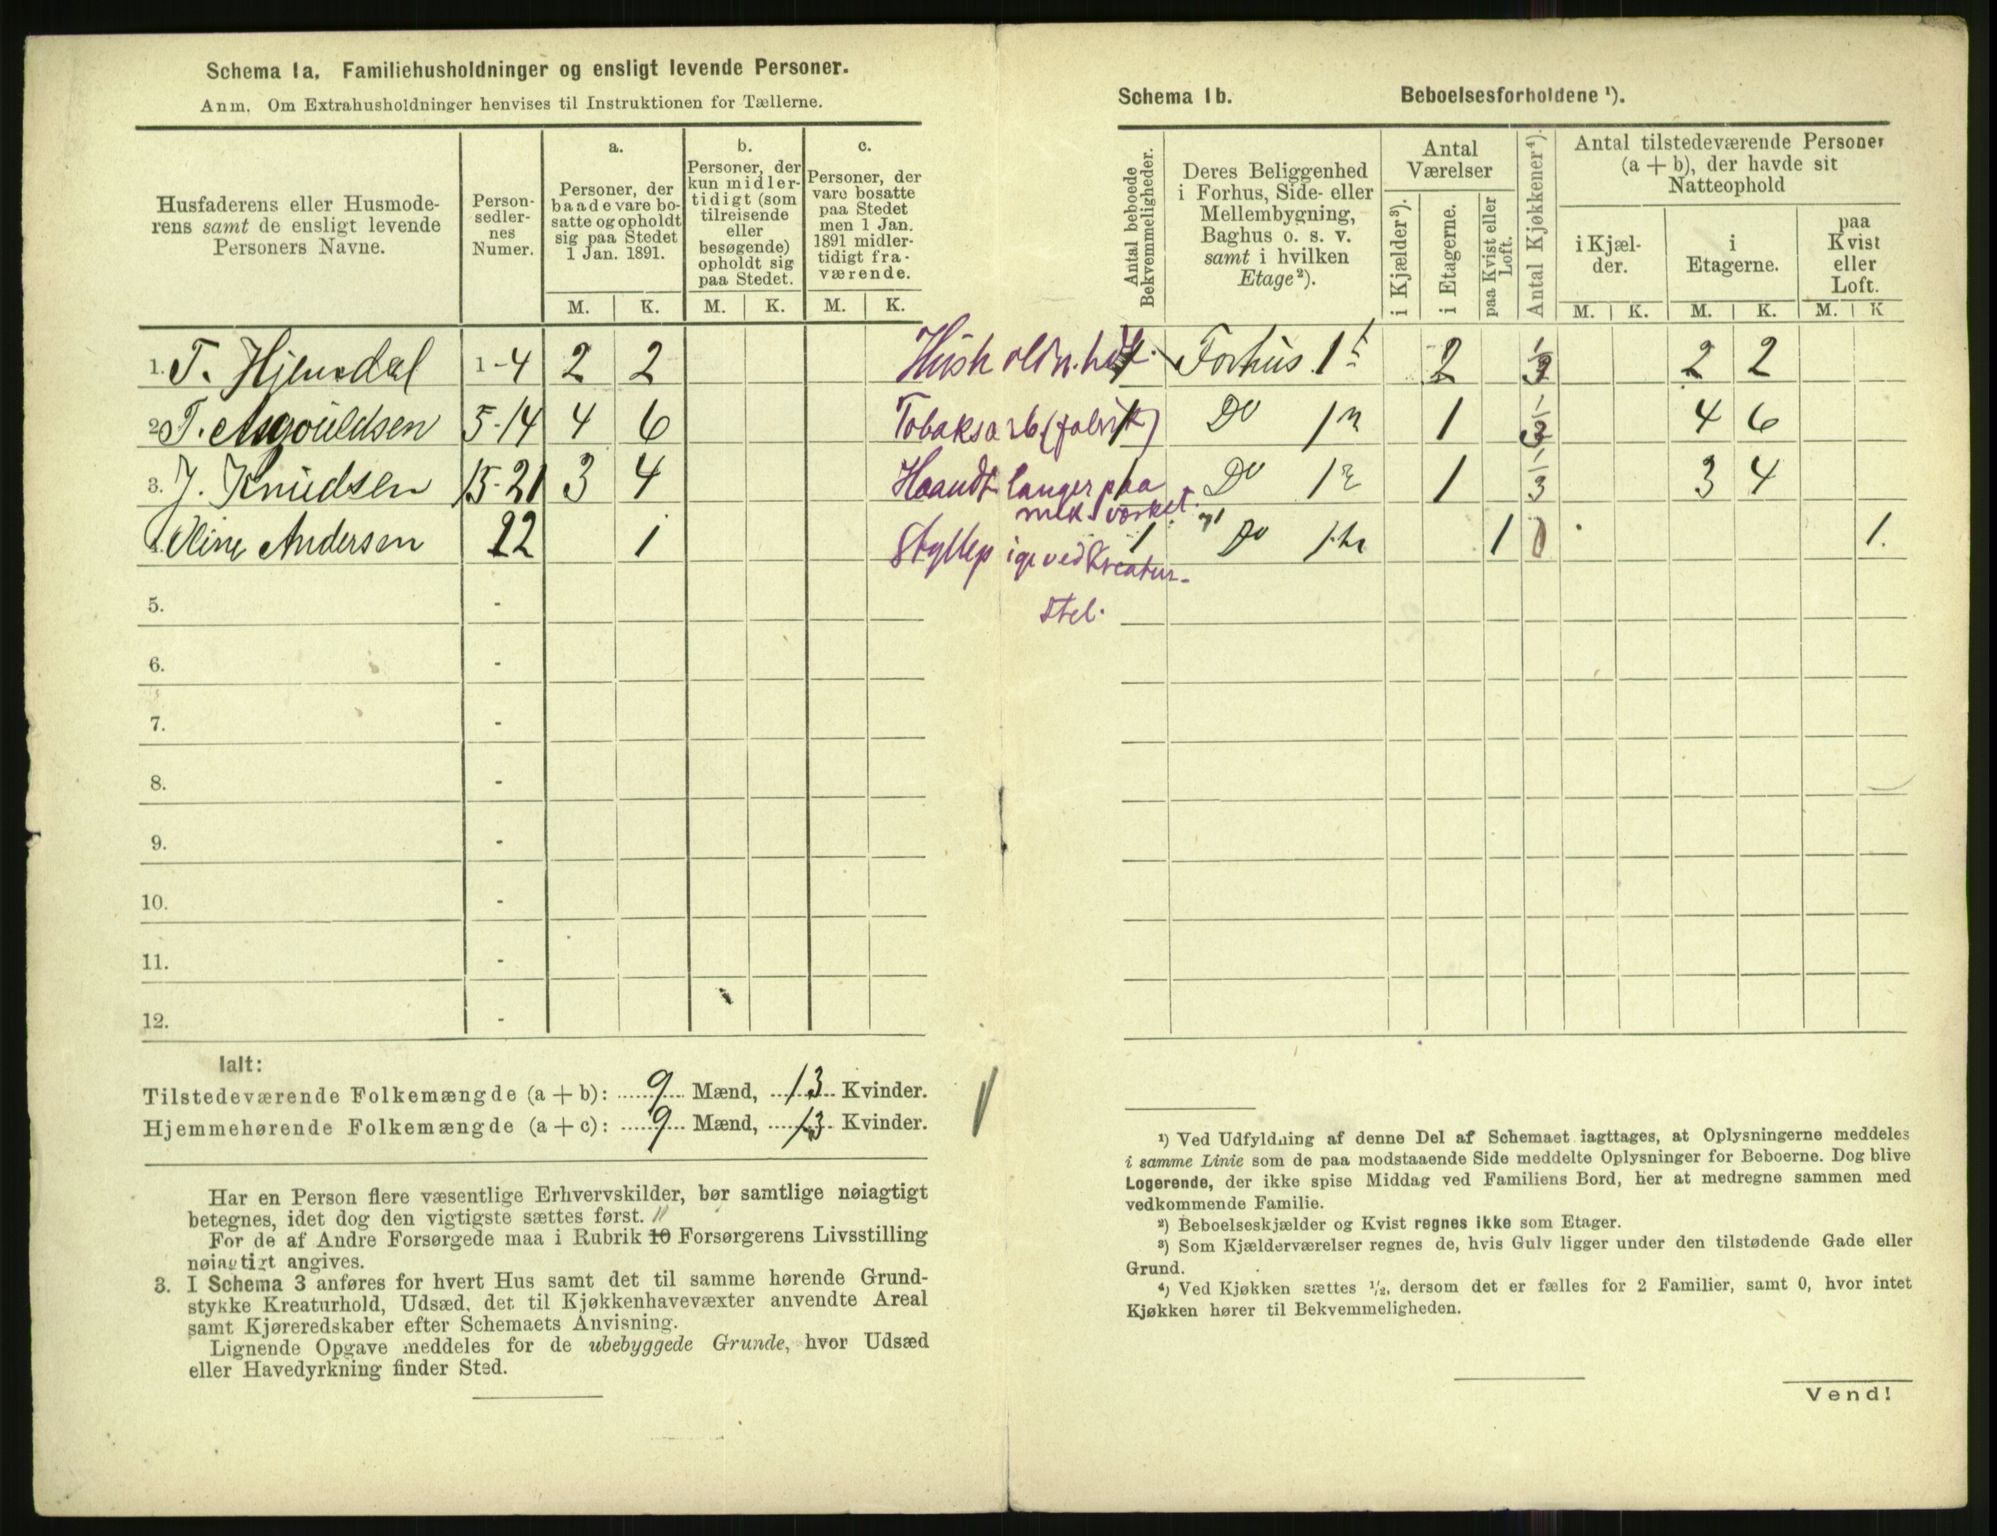 Schema 1a. Familiehusholdninger og ensligt levende Personer.
Anm. Om Extrahusholdninger henvises til Instruktionen for Tællerne.
Husfaderens eller Husmoderens samt de ensligt levende Personers Navne.
Personsedlernes Numer.
a. Personer, der baade vare bosatte og opholdt sig paa Stedet 1 Jan. 1891.
b. Personer, der kun midlertidigt (som tilreisende eller besøgende) opholdt sig paa Stedet.
c. Personer, der vare bosatte paa Stedet men 1 Jan. 1891 midlertidigt fraværende.
M. K. M. K. M. K.
1. T. Hjemdal 1-4 2 2
2. T. 5-14 4 6
3. J. Knudsen 15-21 3 4
4. Oline Andersen 22 1
5. -
6. -
7. -
8. -
9. -
10. -
11. -
12. -
Ialt:
Tilstedeværende Folkemængde (a + b): 9 Mænd, 13 Kvinder.
Hjemmehørende Folkemængde (a + c): 9 Mænd, 13 Kvinder.
Har en Person flere væsentlige Erhvervskilder, bør samtlige nøiagtigt
betegnes, idet dog den vigtigste sættes først. 11
For de af Andre Forsørgede maa i Rubrik 10 Forsørgerens Livsstilling
nøiagtigt angives.
3. I Schema 3 anføres for hvert Hus samt det til samme hørende Grund-
stykke Kreaturhold, Udsæd, det til Kjøkkenhavevæxter anvendte Areal
samt Kjøreredskaber efter Schemaets Anvisning.
Lignende Opgave meddeles for de ubebyggede Grunde, hvor Udsæd
eller Havedyrkning finder Sted.
Schema 1b. Beboelsesforholdene ¹).
Antal beboede Bekvemmeligheder.
Deres Beliggenhed i Forhus, Side- eller Mellembygning, Baghus o. s. v. samt i hvilken Etage²).
Antal Værelser
i Kjælder³).
i Etagerne.
paa Kvist eller Loft.
Antal Kjøkkener⁴).
Antal tilstedeværende Personer (a + b), der havde sit Natteophold
i Kjælder.
i Etagerne.
paa Kvist eller Loft.
M. K. M. K. M. K
Forhus 1 2 2 2
Tobaksarb (fabrik) 1 Do 1 1 4 6
Haandtlanger paa 1 Do 1 1 3 4
mek. værket.
1 Do 1 1 0 1.
ved Kreatur-
stel.
¹) Ved Udfyldning af denne Del af Schemaet iagttages, at Oplysningerne meddeles
i samme Linie som de paa modstaaende Side meddelte Oplysninger for Beboerne. Dog blive
Logerende, der ikke spise Middag ved Familiens Bord, her at medregne sammen med
vedkommende Familie.
²) Beboelseskjælder og Kvist regnes ikke som Etager.
³) Som Kjælderværelser regnes de, hvis Gulv ligger under den tilstødende Gade eller
Grund.
⁴) Ved Kjøkken sættes ½, dersom det er fælles for 2 Familier, samt 0, hvor intet
Kjøkken hører til Bekvemmeligheden.
Vend!